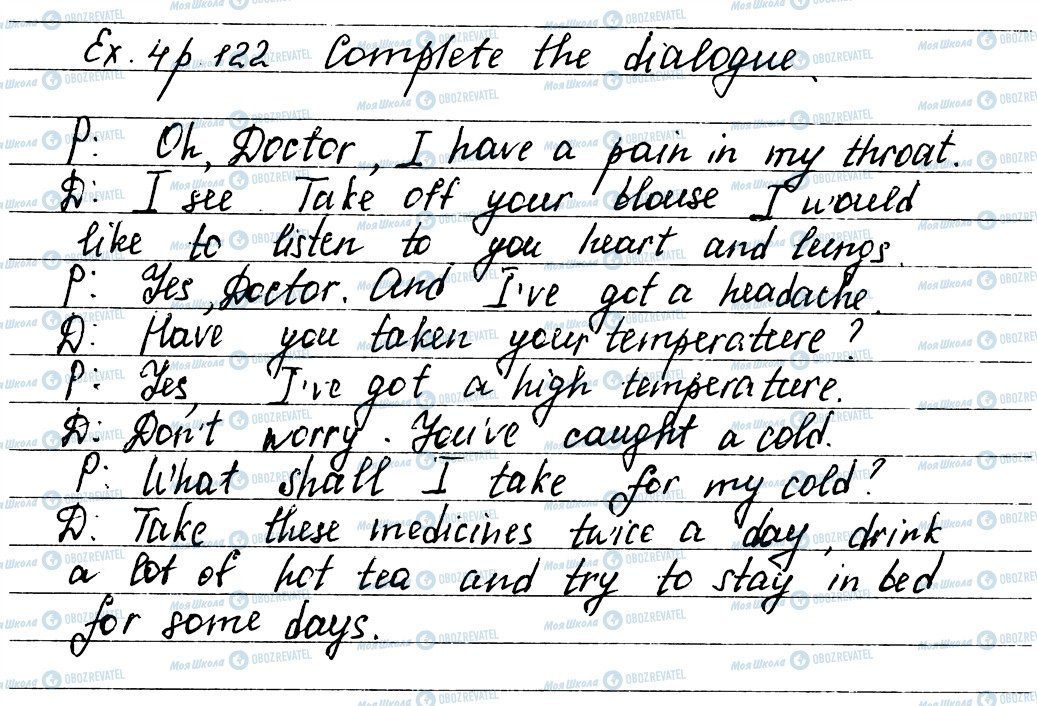 Ex. 4 p. 122 Complete the dialogue.
P: Oh, Doctor, I have a pain in my throat.
D: I see. Take off your blouse I would
like to listen to you heart and lungs.
P: Yes, Doctor. And I've got a headache.
D: Have you taken your temperature?
P: Yes, I've got a high temperature.
D: Don't worry. You've caught a cold.
P: What shall I take for my cold?
D: Take these medicines twice a day, drink
a lot of hot tea and try to stay in bed
for some days.